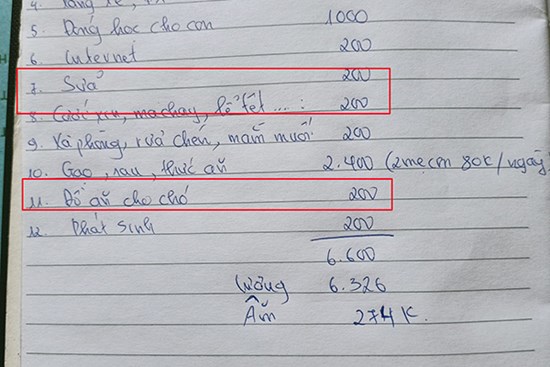 5. Đóng học cho con 1000
6. Internet 200
7. Sữa 200
8. Cưới xin, ma chay, lễ tết ... : 200
9. Xà phòng, rửa chén, mắm muối: 200
10. Gạo, rau, thức ăn 2.400 (2 mẹ con 80K/ngày)
11. Đồ ăn cho chó 200
12. Phát sinh 200
6.600
Lương 6.326
Âm 274K.